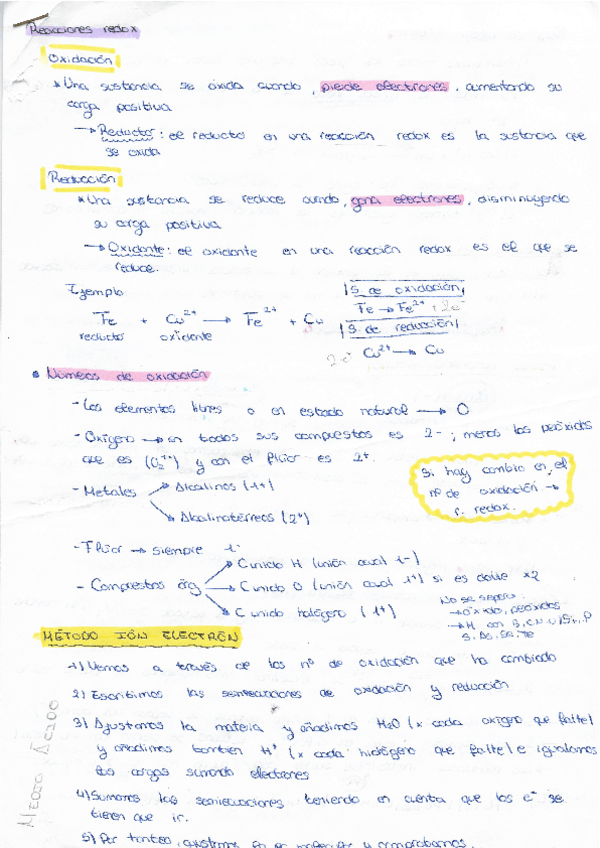 Reacciones redox
Oxidación
* Una sustancia se oxida cuando, pierde electrones, aumentando su
carga positiva
→ Reductor: el reductor en una reacción redox es la sustancia que
se oxida
Reducción
* Una sustancia se reduce cuando, gana electrones, disminuyendo
su carga positiva
→ Oxidante: el oxidante en una reacción redox es el que se
reduce.
Ejemplo
Fe + Cu²⁺ → Fe²⁺ + Cu
reductor oxidante
S. de oxidación
Fe → Fe²⁺ + 2e⁻
S. de reducción
2e⁻ Cu²⁺ → Cu
• Números de oxidación
- Los elementos libres o en estado natural → 0
- Oxígeno → en todos sus compuestos es 2-; menos los peróxidos
que es y con el flúor es 2+.
- Metales → Alcalinos (1+)
→ Alcalinotérreos (2+)
Si hay cambio en el
nº de oxidación →
r. redox.
- Flúor → siempre 1-
- Compuestos órg → C unido H (unión cual 1-)
→ C unido O (unión cual 1+) si es doble x2
→ C unido halógeno (1+)
No se separa
→ óxido, peróxidos
→ H con
S, As, Se, Te
MÉTODO IÓN ELECTRÓN
1) Vemos a través de los nº de oxidación que ha cambiado
2) Escribimos las semiecuaciones de oxidación y reducción
3) Ajustamos la materia y añadimos H₂O (x cada oxígeno que falte)
y añadimos también H⁺ (x cada hidrógeno que falte) e igualamos
las cargas sumando electrones
4) Sumamos las semiecuaciones teniendo en cuenta que los e⁻ se
tienen que ir.
5) Por tanteo, y comprobamos.
MEDIO ÁCIDO